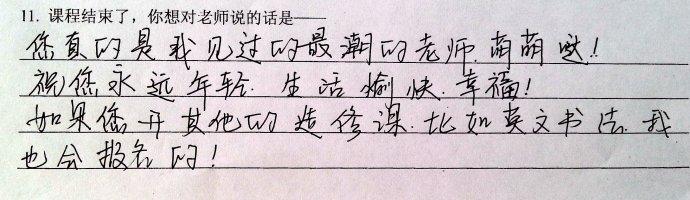 11. 课程结束了，你想对老师说的话是——
您真的是我见过的最潮的老师.萌萌哒!
祝您永远年轻.生活愉快.幸福!
如果您开其他的选修课.比如英文书法.我
也会报名的!